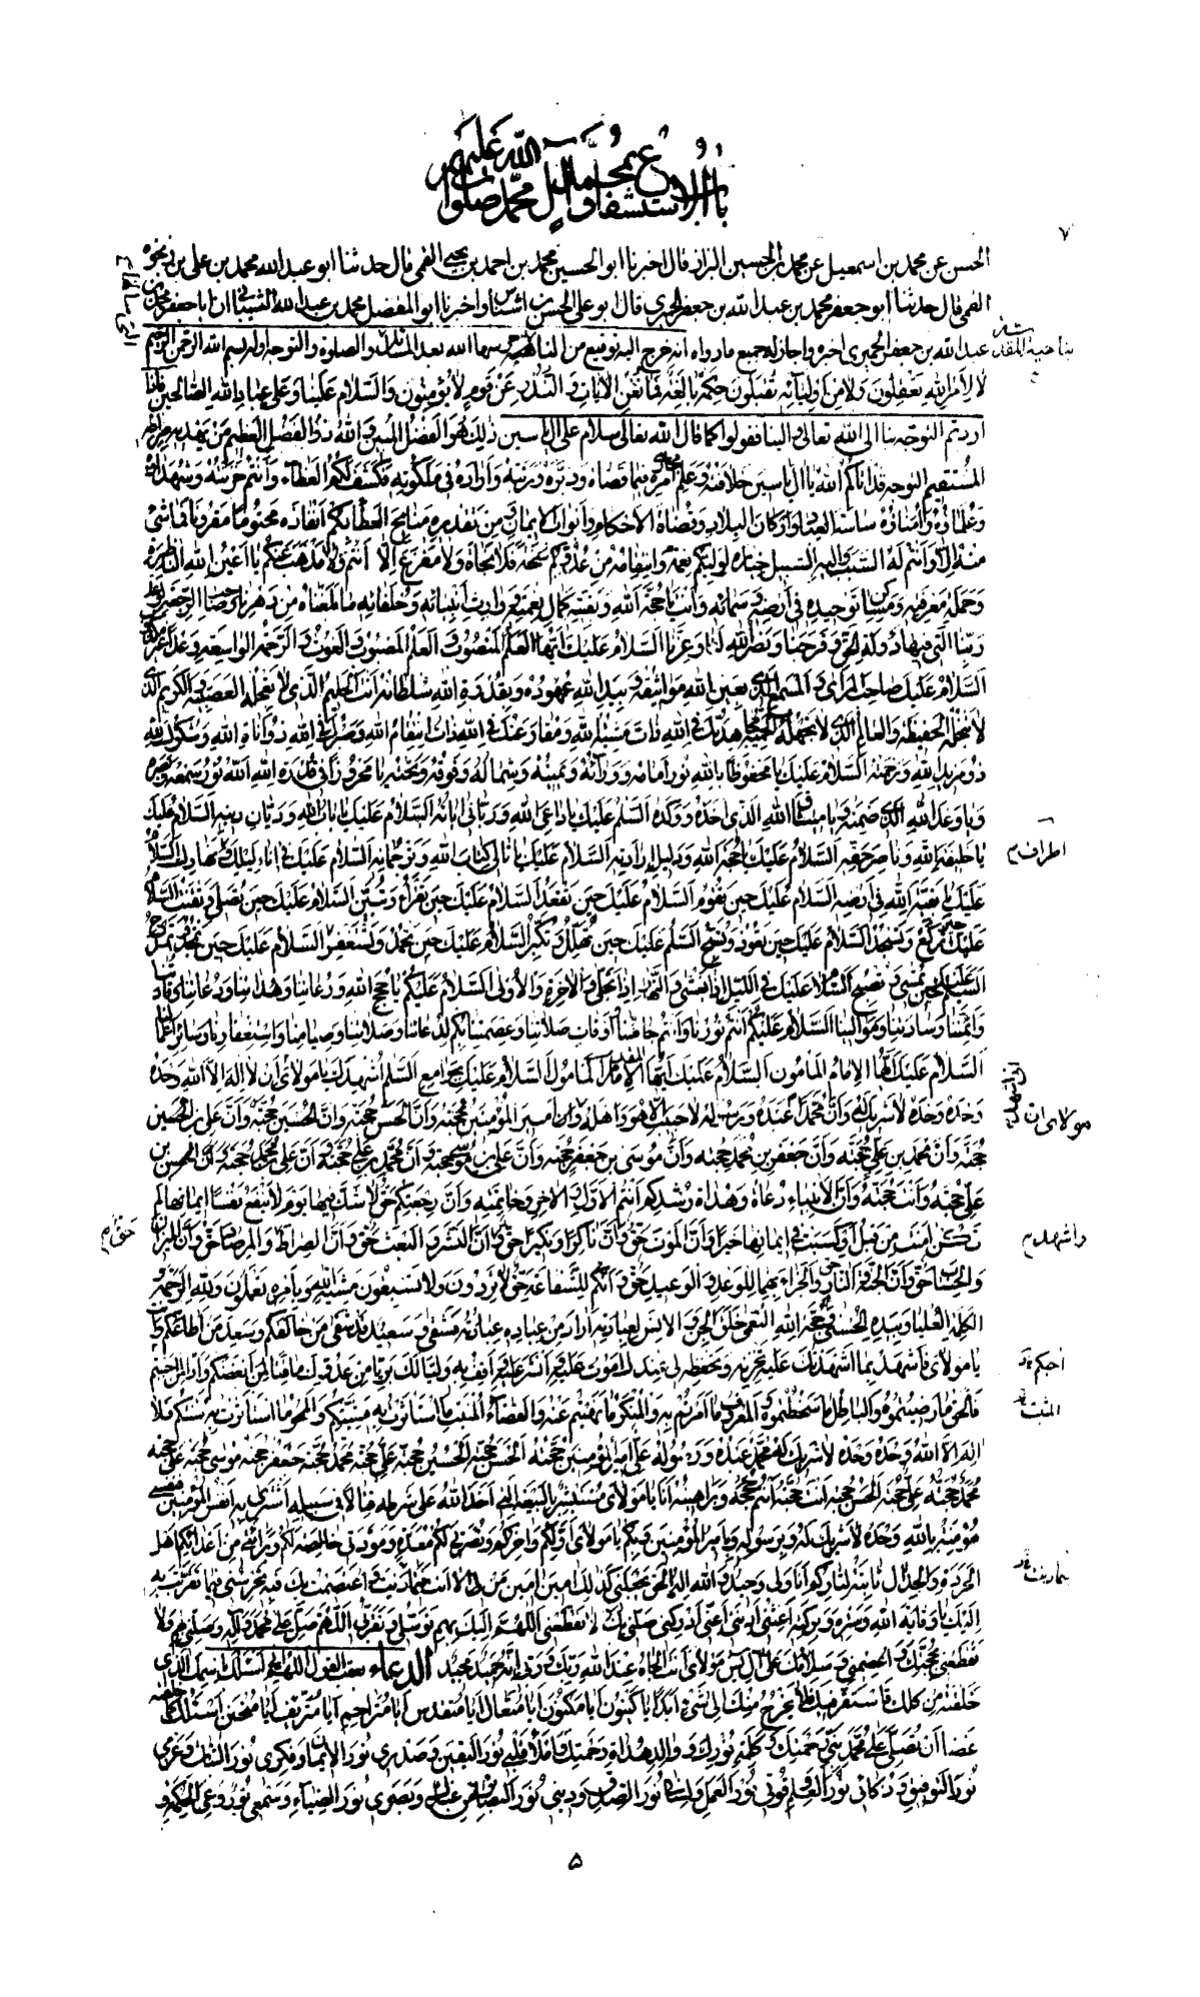 باب الاستشفاع بمحمد وآل محمد صلوات الله عليهم
٧
الحسن عن محمد بن اسمعيل عن محمد بن الحسين البزاز قال اخبرنا ابو الحسين محمد بن احمد بن يحيى القمى قال حدثنا ابو عبد الله محمد بن على بن زنجويه
القمى قال حدثنا ابو جعفر محمد بن عبد الله بن جعفر الحميرى قال ابو على الحسن بن اشناس واخبرنا ابو المفضل محمد بن عبد الله الشيبانى ان ابا جعفر محمد بن
عبد الله بن جعفر الحميرى اخبره واجاز له جميع ما رواه انه خرج اليه توقيع من الناحية حرسها الله بعد المسائل والصلوة والتوجه اوله بسم الله الرحمن الرحيم
لا لامر الله تعقلون ولا من اوليائه تقبلون حكمة بالغة فما تغن الآيات والنذر عن قوم لا يؤمنون والسلام علينا وعلى عباد الله الصالحين فاذا
اردتم التوجه بنا الى الله تعالى والينا فقولوا كما قال الله تعالى سلام على آل ياسين ذلك هو الفضل المبين والله ذو الفضل العظيم من يهديه صراطه
المستقيم التوجه قد اتاكم الله يا آل ياسين خلافته وعلم مجارى امره فيما قضاه ودبره ورتبه واراده فى ملكوته فكشف لكم الغطاء وانتم خزنته وشهداؤه
وعلماؤه وامناؤه ساسة العباد واركان البلاد وقضاة الاحكام وابواب الايمان من تقديره منايح العطاء بكم انفاذه محتوما مقرونا فما شئ
منه الا وانتم له السبب واليه السبيل خياره لوليكم نعمة وانتقامه من عدوكم سخطة فلا نجاة ولا مفزع الا انتم ولا مذهب عنكم يا اعين الله الناظرة
وحملة معرفته ومساكن توحيده فى ارضه وسمائه وانت يا حجة الله وبقيته كمال نعمته ووارث انبيائه وخلفائه ما بلغناه من دهرنا وصاحب الرجعة لوعد
ربنا التى فيها دولة الحق وفرجنا ونصر الله لنا وعزنا السلام عليك ايها العلم المنصوب والعلم المصبوب والغوث والرحمة الواسعة وعدا غير مكذوب
السلام عليك صاحب المرأى والمسمع الذى بعين الله مواثيقه وبيد الله عهوده وبقدرة الله سلطانه انت الحليم الذى لا تعجله العصبية والكريم الذى
لا تبخله الحفيظة والعالم الذى لا تجهله الحمية مجاهدتك فى الله ذات مشية الله ومقارعتك فى الله ذات انتقام الله وصبرك فى الله ذو اناة الله وشكرك لله
ذو مزيد الله ورحمته السلام عليك يا محفوظا بالله نور امامه وورائه ويمينه وشماله وفوقه وتحته يا محروزا فى قدرة الله الله نور سمعه وبصره
ويا وعد الله الذى ضمنه ويا ميثاق الله الذى اخذه ووكده السلم عليك يا داعى الله وربانى آياته السلام عليك يا باب الله وديان دينه السلام عليك
يا خليفة الله وناصر حقه السلام عليك يا حجة الله ودليل ارادته السلام عليك يا تالى كتاب الله وترجمانه السلام عليك فى آناء ليلك ونهارك السلام
عليك يا بقية الله فى ارضه السلام عليك حين تقوم السلام عليك حين تقعد السلام عليك حين تقرأ وتبين السلام عليك حين تصلى وتقنت السلام
عليك حين تركع وتسجد السلام عليك حين تعوذ وتسبح السلم عليك حين تهلل وتكبر السلام عليك حين تحمد وتستغفر السلام عليك حين تمجد وتمدح
السلم عليك حين تمسى وتصبح السلام عليك فى الليل اذا يغشى والنهار اذا تجلى والآخرة والاولى السلام عليكم يا حجج الله ورعاتنا وهداتنا ودعاتنا وقادتنا
وائمتنا وسادتنا وموالينا السلام عليكم انتم نورنا وانتم جاهنا اوقات صلاتنا وعصمتنا بكم لدعائنا وصلاتنا وصيامنا واستغفارنا وسائر اعمالنا
السلام عليك ايها الامام المأمون السلام عليك ايها الامام المقدم المأمول السلام عليك بجوامع السلم اشهدك يا مولاى ان لا اله الا الله وحده
وحده وحده لا شريك له وان محمدا عبده ورسوله لا حبيب الا هو واهله وان امير المؤمنين حجته وان الحسن حجته وان الحسين حجته وان على بن الحسين
حجته وان محمد بن على حجته وان جعفر بن محمد حجته وان موسى بن جعفر حجته وان على بن موسى حجته وان محمد بن على حجته وان على بن محمد حجته وان الحسن بن
على حجته وانت حجته وان الانبياء دعاة وهداة رشدكم انتم الاول والآخر وخاتمته وان رجعتكم حق لا شك فيها يوم لا ينفع نفسا ايمانها لم
تكن آمنت من قبل او كسبت فى ايمانها خيرا وان الموت حق وان ناكرا ونكيرا حق وان النشر والبعث حق وان الصراط والمرصاد حق وان الميزان
والحساب حق وان الجنة والنار حق والجزاء بهما للوعد والوعيد حق وانكم للشفاعة حق لا تردون ولا تسبقون بمشية الله وبامره تعملون ولله الرحمة و
الكلمة العليا وبيده الحسنى وحجة الله النعمى خلق الجن والانس لعبادته اراد من عباده عبادته فشقى وسعيد قد شقى من خالفكم وسعد من اطاعكم وانت
يا مولاى فاشهد بما اشهدتك عليه تخزنه وتحفظه لى عندك اموت عليه وانشر عليه واقف به وليا لك بريئا من عدوك ماقتا لمن ابغضكم وادا لمن احبكم
فالحق ما رضيتموه والباطل ما سخطتموه والمعروف ما امرتم به والمنكر ما نهيتم عنه والقضاء المثبت ما استأثرت به مشيتكم والممحو ما استأثرت به سنتكم فلا
اله الا الله وحده وحده وحده لا شريك له ومحمد عبده ورسوله على امير المؤمنين حجته الحسن حجته الحسين حجته على حجته محمد حجته جعفر حجته موسى حجته على حجته
محمد حجته على حجته الحسن حجته انت حجته انتم حججه وبراهينه انا يا مولاى مستبشر بالبيعة التى اخذ الله على شرطه قتالا فى سبيله اشترى به انفس المؤمنين فنفسى
مؤمنة بالله وحده لا شريك له وبرسوله وبامير المؤمنين وبكم يا مولاى اولكم وآخركم ونصرتى لكم معدة ومودتى خالصة لكم وبرائتى من اعدائكم اهل
الحردة والجدال ثابتة لثاركم انا ولى وحيد والله اله الحق يجعلنى كذلك آمين آمين من لى الا انت فيما دنت واعتصمت بك فيه تحرسنى فيما تقربت به
اليك يا وقاية الله وستره وبركته اغثنى ادننى اعنى ادركنى صلنى بك لا تقطعنى اللهم اليك بهم توسلى وتقربى اللهم صل على محمد وآله وصلنى بهم ولا
تقطعنى بحجتك واعصمنى وسلامك على آل يس مولاى انت الجاه عند الله ربك وربى انه حميد مجيد الدعاء بعقب القول اللهم انى اسئلك باسمك الذى
خلقته من كلك فاستقر فيك فلا يخرج منك الى شئ ابدا ايا كينون ايا مكنون ايا متعال ايا متقدس ايا متراحم ايا مترئف ايا متحنن اسئلك كما خلقته
غضا ان تصلى على محمد نبى رحمتك وكلمة نورك ووالد هداة رحمتك واملأ قلبى نور اليقين وصدرى نور الايمان وفكرى نور الثبات وعزمى
نور التوفيق وذكائى نور العلم وقوتى نور العمل ولسانى نور الصدق ودينى نور البصائر من عندك وبصرى نور الضياء وسمعى نور وعى الحكمة و
بناحية المقدسة
اطراف م
مولاى ان
واشهد م
حق م
احبكم
المثبت
٥